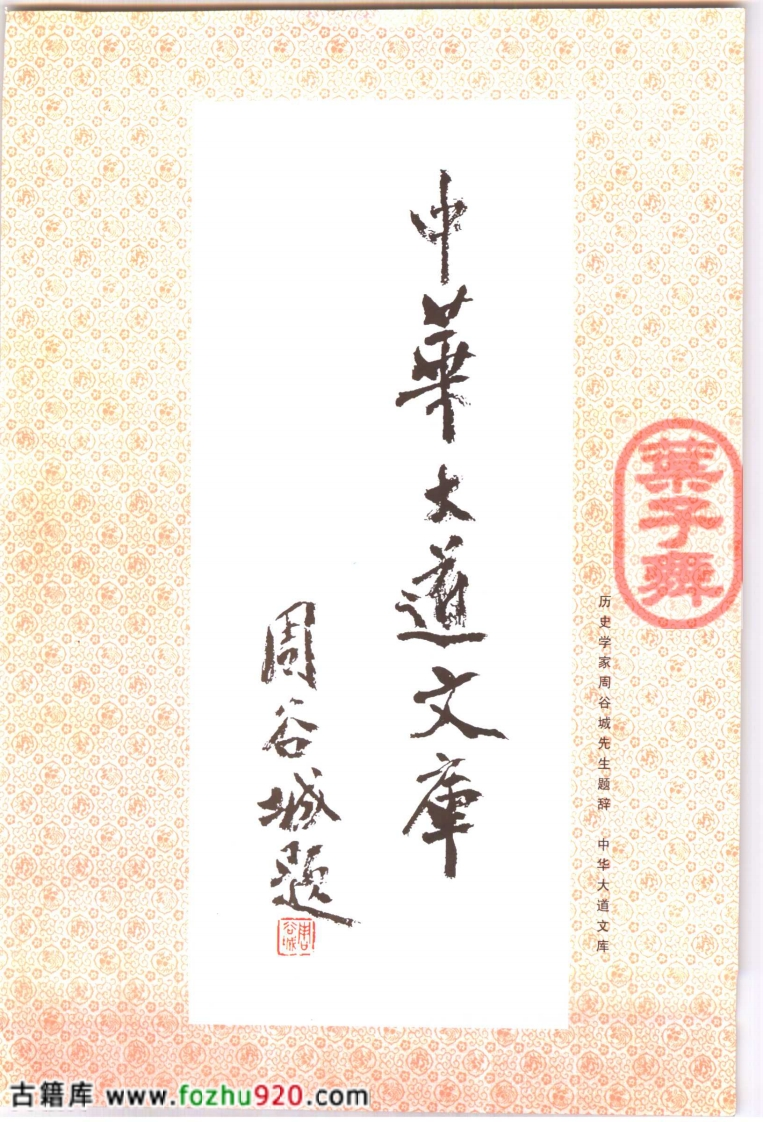 中華大道文庫
周谷城題
周谷城
历史学家周谷城先生题辞 中华大道文库
葉子舞
古籍库 www.fozhu920.com